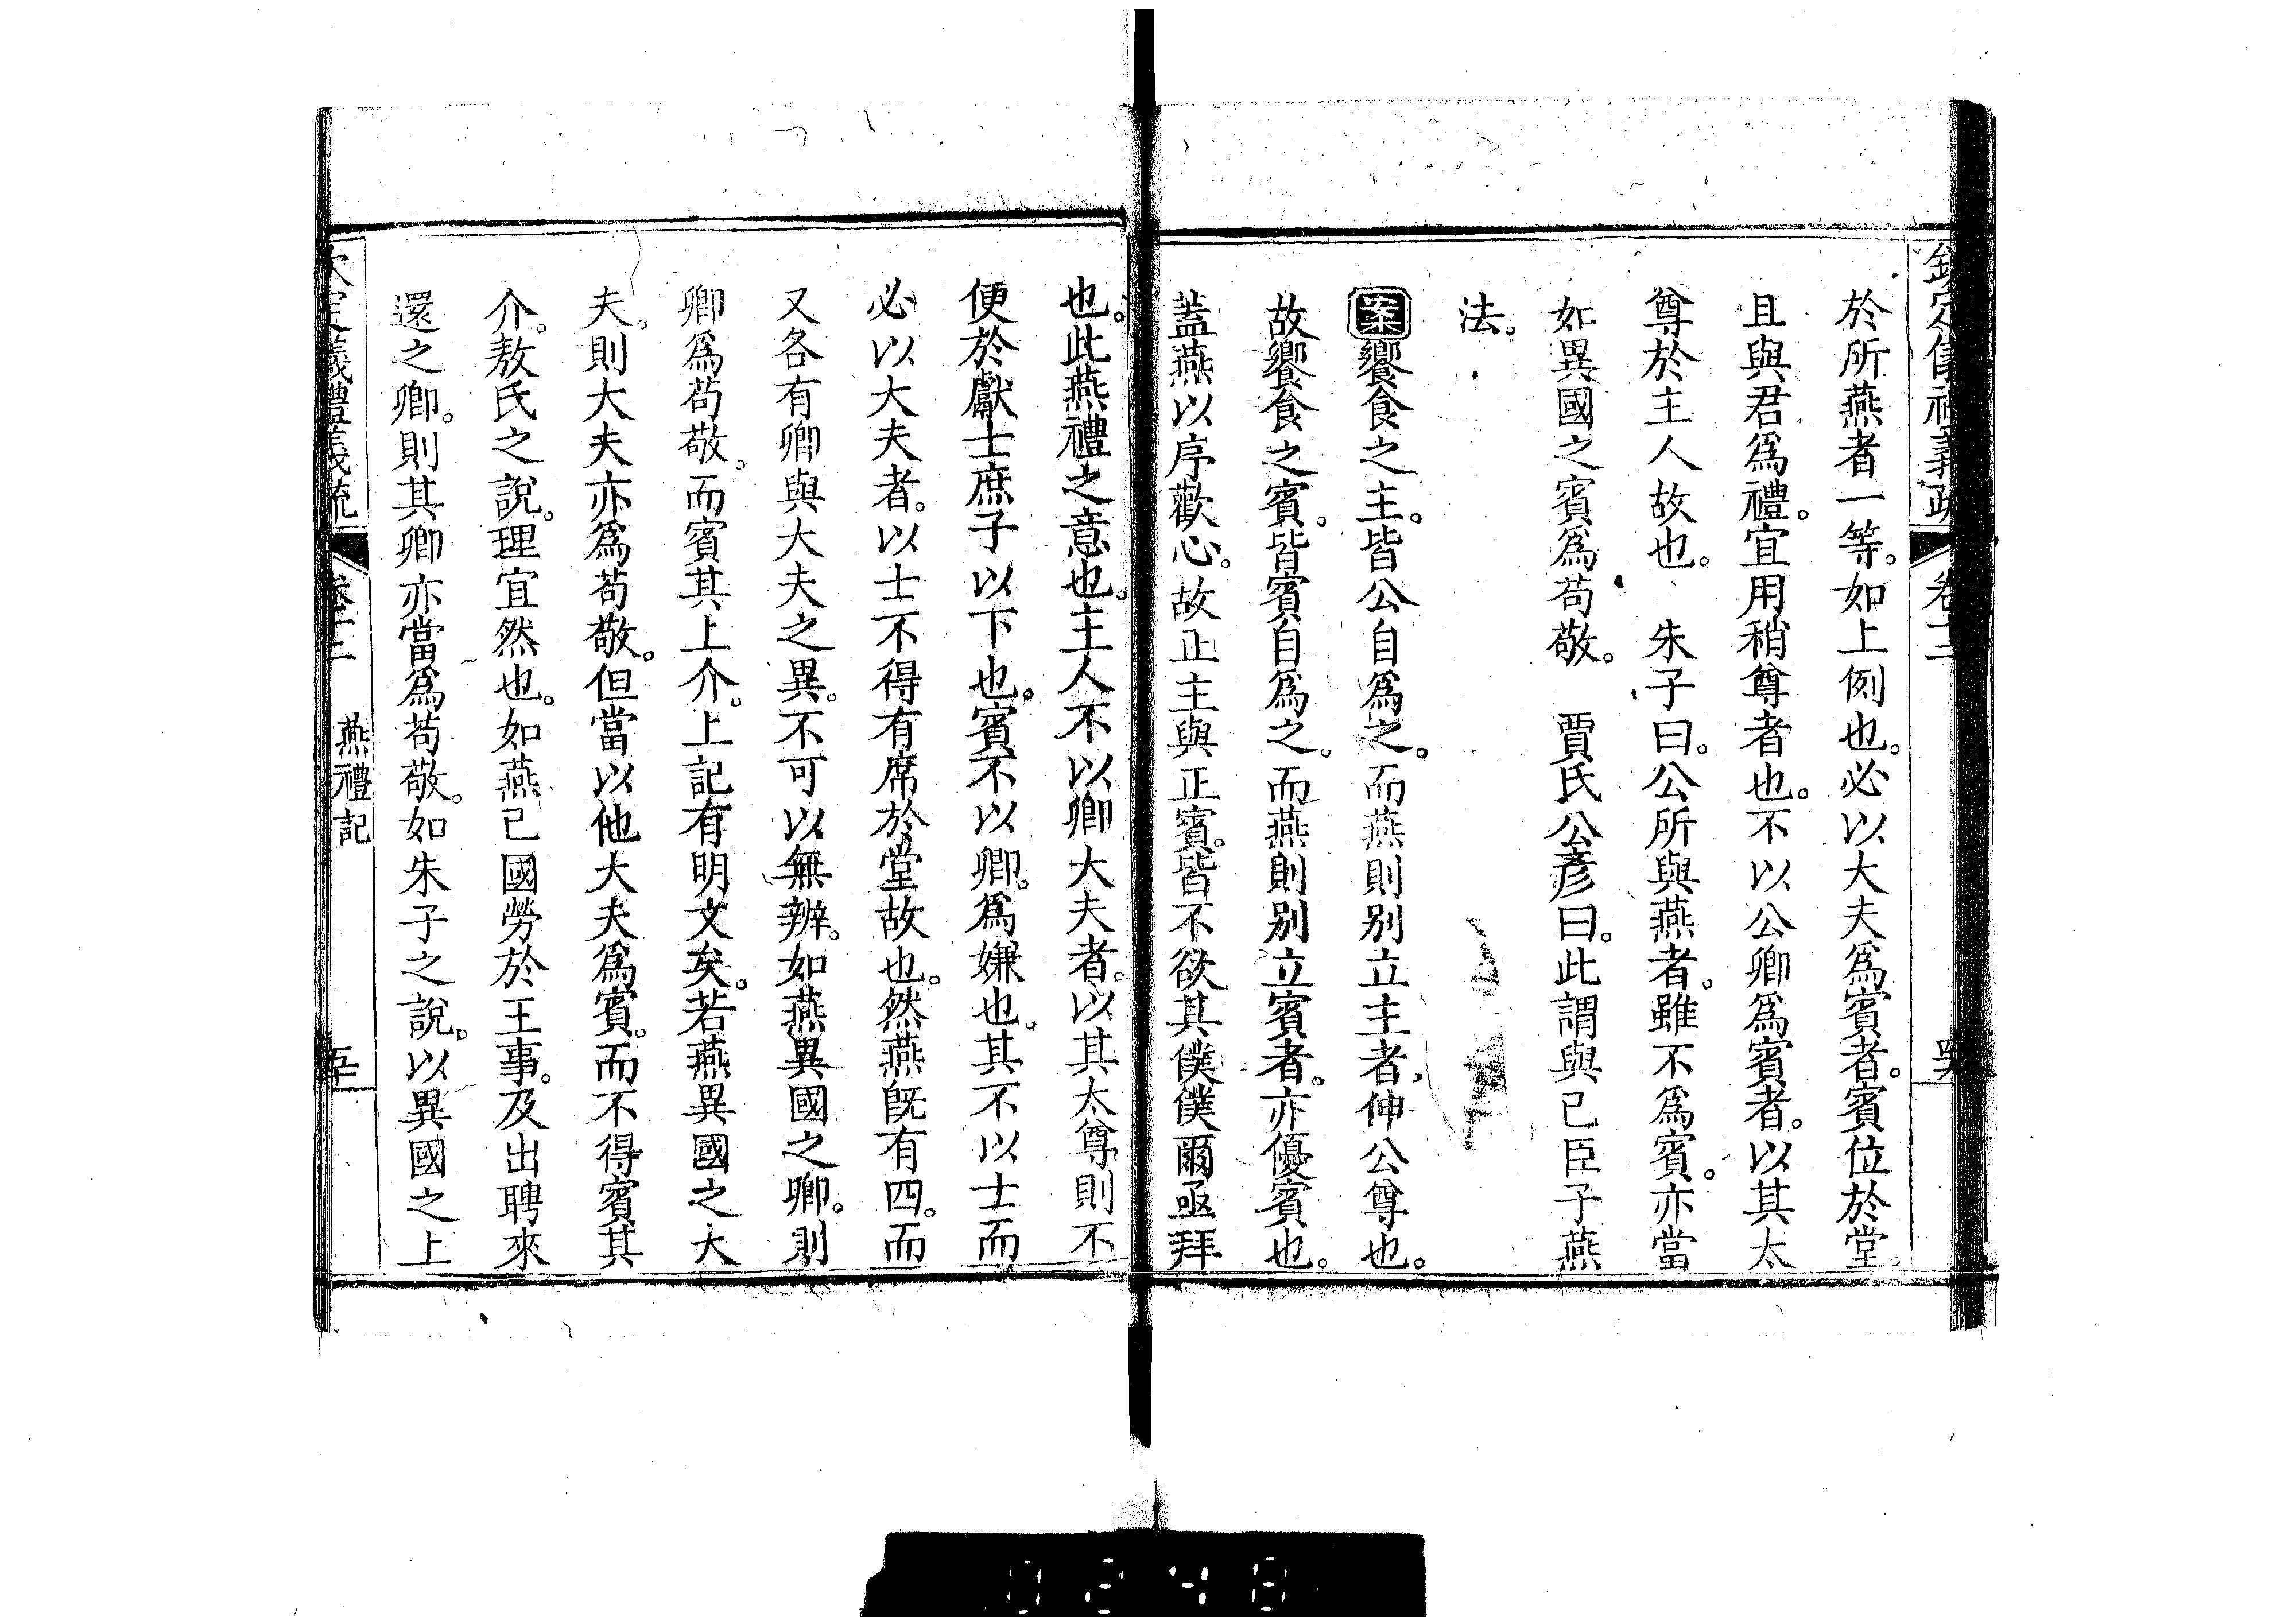 於所燕者一等。如上例也。必以大夫爲賓者。賓位於堂。
且與君爲禮。宜用稍尊者也。不以公卿爲賓者。以其太
尊於主人故也。　朱子曰。公所與燕者。雖不爲賓。亦當
如異國之賓爲苟敬。　賈氏公彥曰。此謂與己臣子燕
法。
案饗食之主。皆公自爲之。而燕則别立主者,伸公尊也。
故饗食之賓。皆賓自爲之。而燕則别立賓者。亦優賓也。
蓋燕以序歡心。故正主與正賓。皆不欲其僕僕爾亟拜
也。此燕禮之意也。主人不以卿大夫者。以其太尊則不
便於獻士庶子以下也。賓不以卿。爲嫌也。其不以士而
必以大夫者。以士不得有席於堂故也。然燕旣有四。而
又各有卿與大夫之異。不可以無辨。如燕異國之卿。則
卿爲苟敬。而賓其上介。上記有明文矣。若燕異國之大
夫。則大夫亦爲苟敬。但當以他大夫爲賓。而不得賓其
介。敖氏之說。理宜然也。如燕己國勞於王事。及出聘來
還之卿。則其卿亦當爲苟敬。如朱子之說。以異國之上
燕禮記
0248